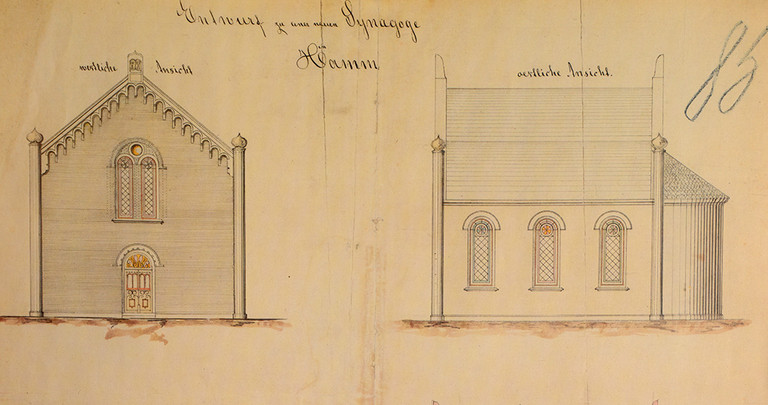 Entwurf zu einer neuen Synagoge
in
Hamm
westliche Ansicht
oestliche Ansicht.
85